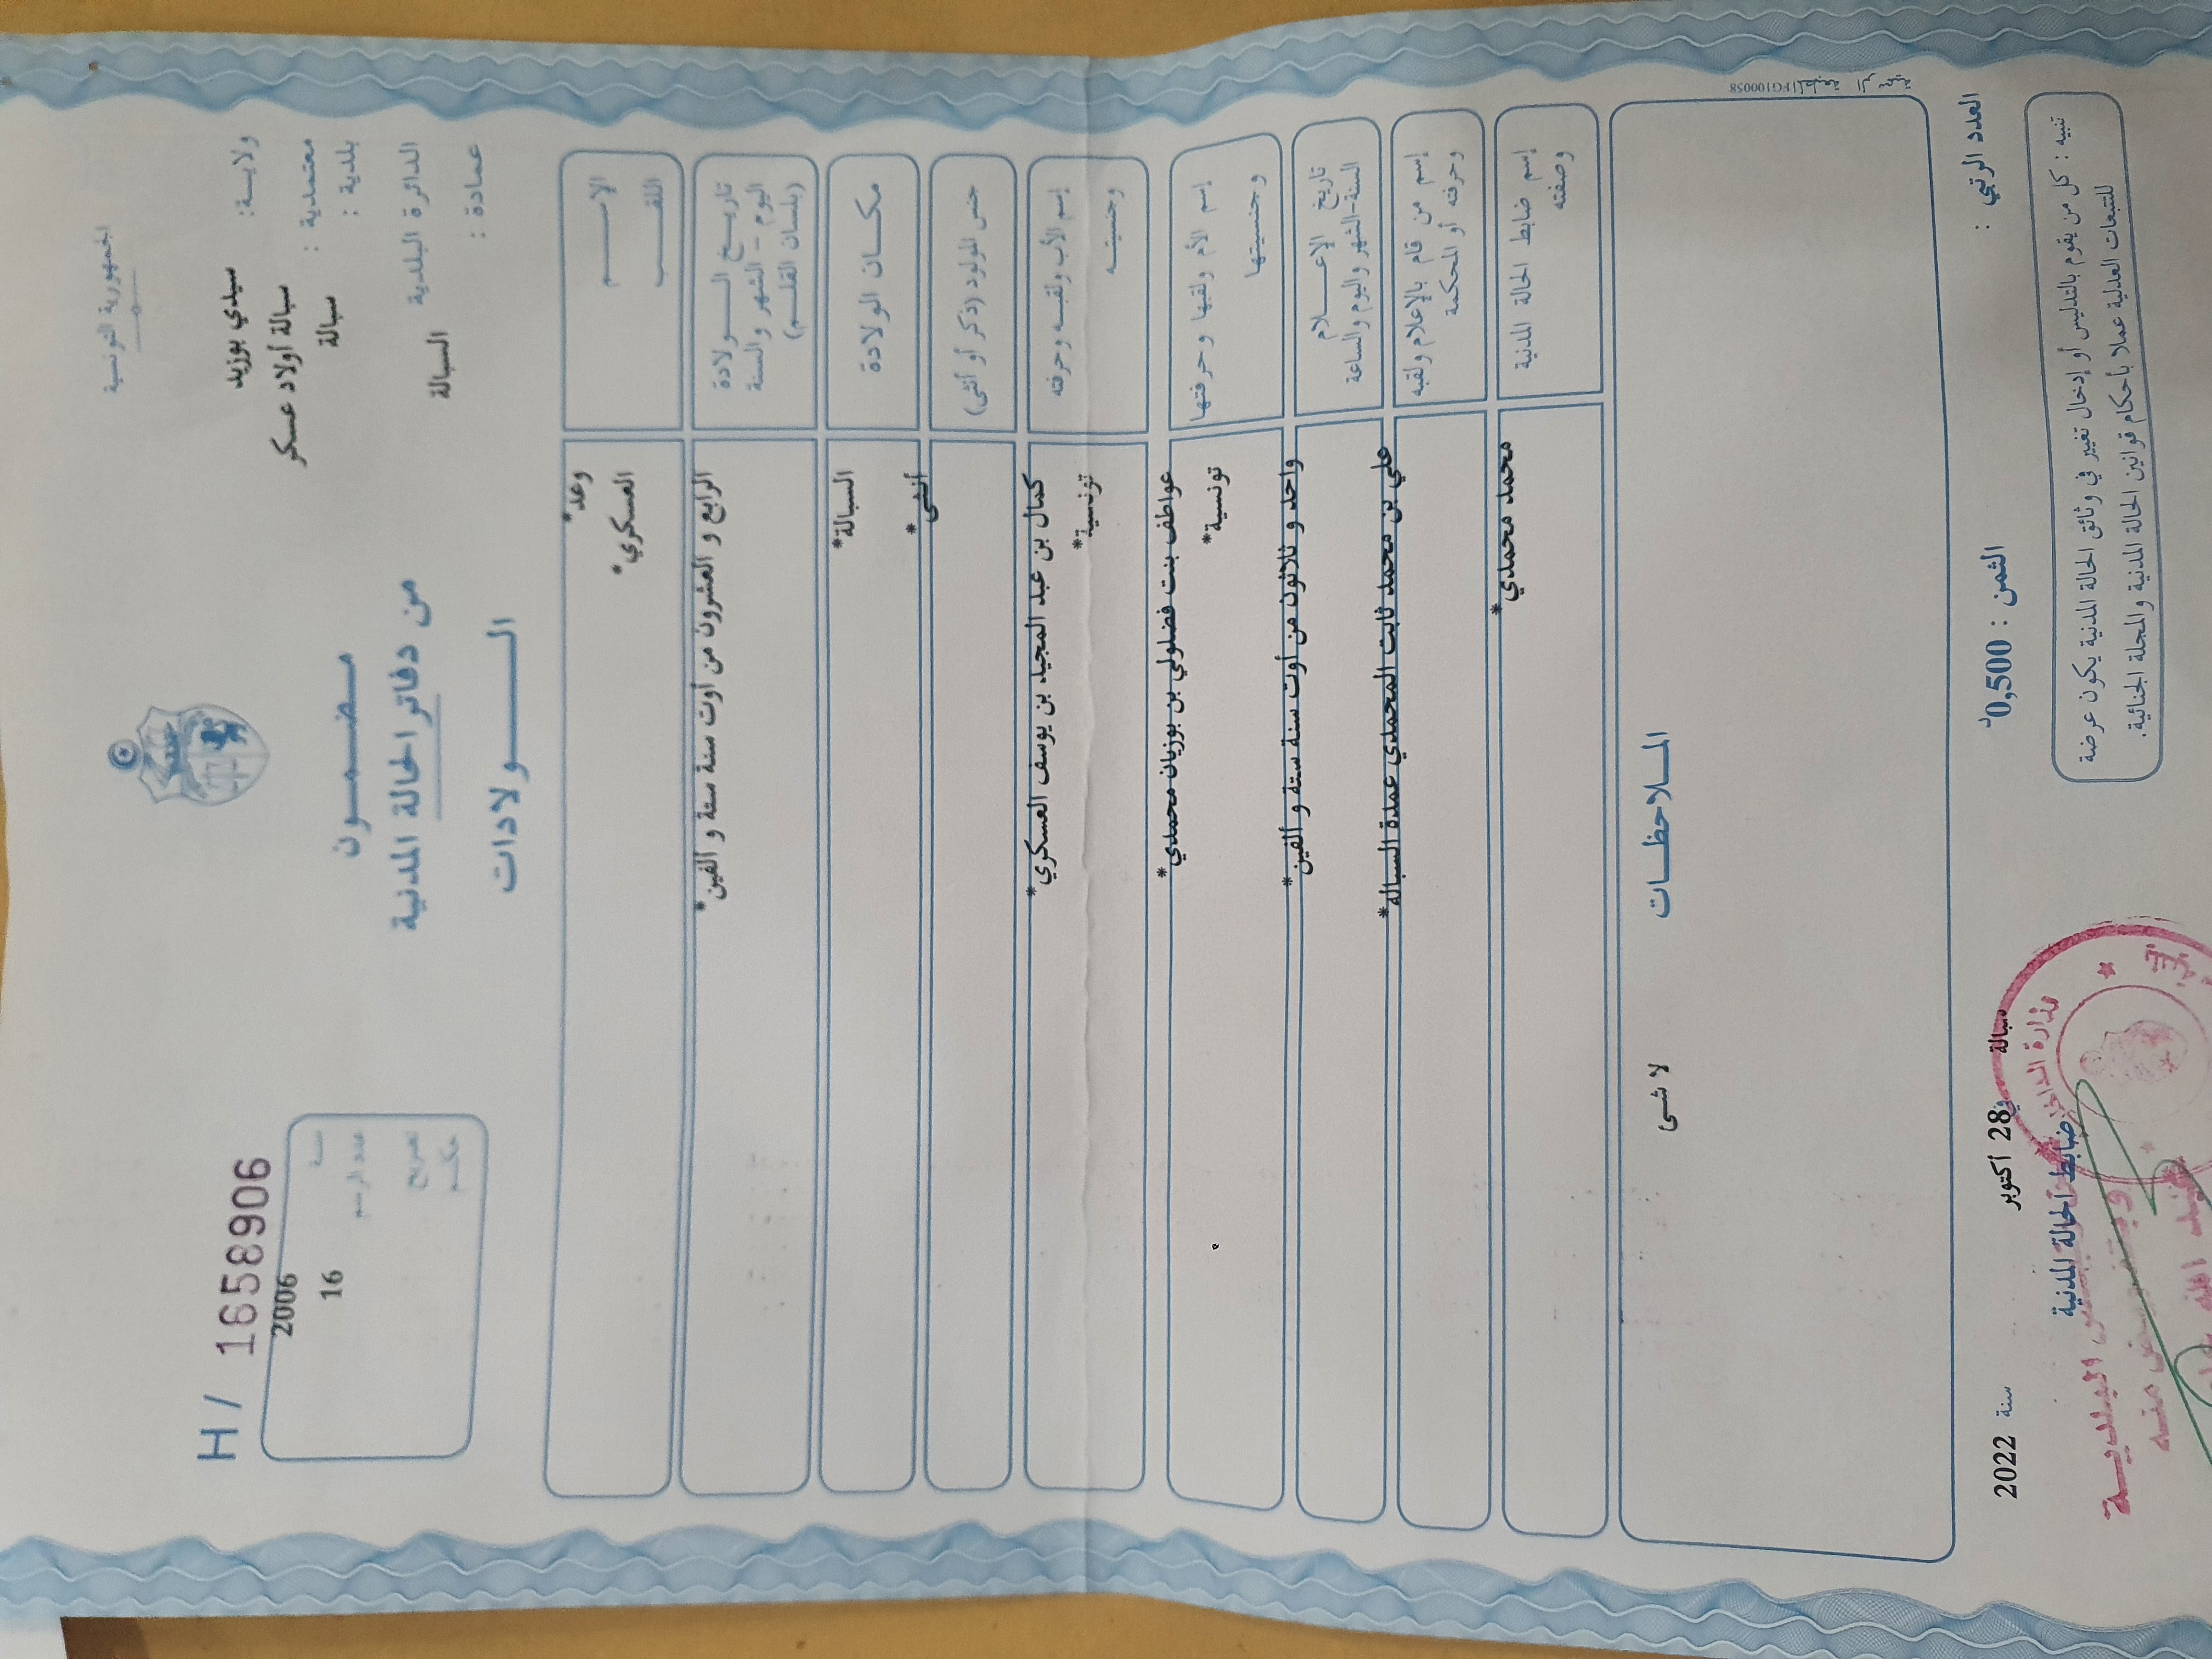 الجمهورية التونسية
H / 1658906
ولايـــة: سيدي بوزيد
معتمدية : سبالة أولاد عسكر
بلدية : سبالة
الدائرة البلدية السبالة
عمادة :
مضـمـــون
من دفاتر الحالة المدنية
الـــــولادات
سنة 2006
عدد الرسم 16
تصريح
حكم
الإســـــم وعد*
اللقـــب العسكري*
تاريــخ الـــــولادة الرابع و العشرون من أوت سنة ستة و ألفين*
اليوم - الشهر والسنة
(بلسان القلــم)
مكــان الولادة السبالة*
جنس المولود (ذكر أو أنثى) أنثى*
إسم الأب ولقبـه وحرفته كمال بن عبد المجيد بن يوسف العسكري*
وجنسيتــه تونسية*
إسم الأم ولقبها وحرفتها عواطف بنت فضلولي بن بوزيان محمدي*
وجنسيتها تونسية*
تاريخ الإعــــلام واحد و ثلاثون من أوت سنة ستة و ألفين*
السنة-الشهر واليوم والساعة
إسم من قام بالإعلام ولقبه علي بن محمد ثابت المحمدي عمدة السبالة*
وحرفته أو المحكمة
إسم ضابط الحالة المدنية محمد محمدي*
وصفته
المـلاحظــات
لا شى
FG100058
العدد الرتبي :
الثمن : 0,500د
سبالة في 28 أكتوبر سنة 2022
ضابط الحالة المدنية
تنبيه : كل من يقوم بالتدليس أو إدخال تغيير في وثائق الحالة المدنية يكون عرضة
للتتبعات العدلية عملا بأحكام قوانين الحالة المدنية والمجلة الجنائية.
وزارة الداخلية